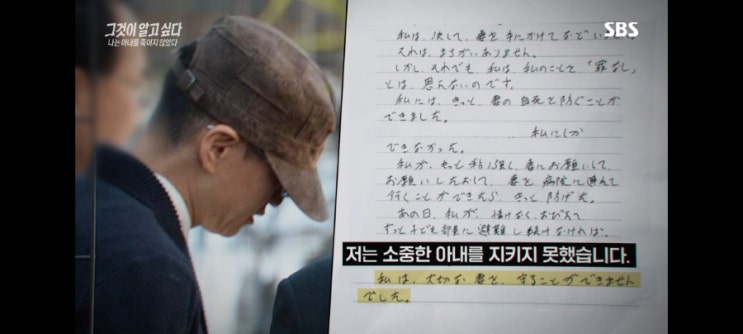 그것이 알고 싶다
나는 아내를 죽이지 않았다
SBS
私は、決して、妻を手にかけてなどい
それは、まちがいありません。
しかし、それでも、私は、私のことを「罪なし」
とは、思えないのです。
私には、きっと、妻の自死を防ぐことが
できました。
私にしか
できなかった。
私が、もっと粘り強く、妻にお願いして、
お願いしたおして、妻を病院に連れて
行くことができたら、きっと防げた。
あの日、私が、情けなく、おびえて、
ずっと子ども部屋に避難し続けなければ、
저는 소중한 아내를 지키지 못했습니다.
私は、大切な妻を、守ることができません
でした。